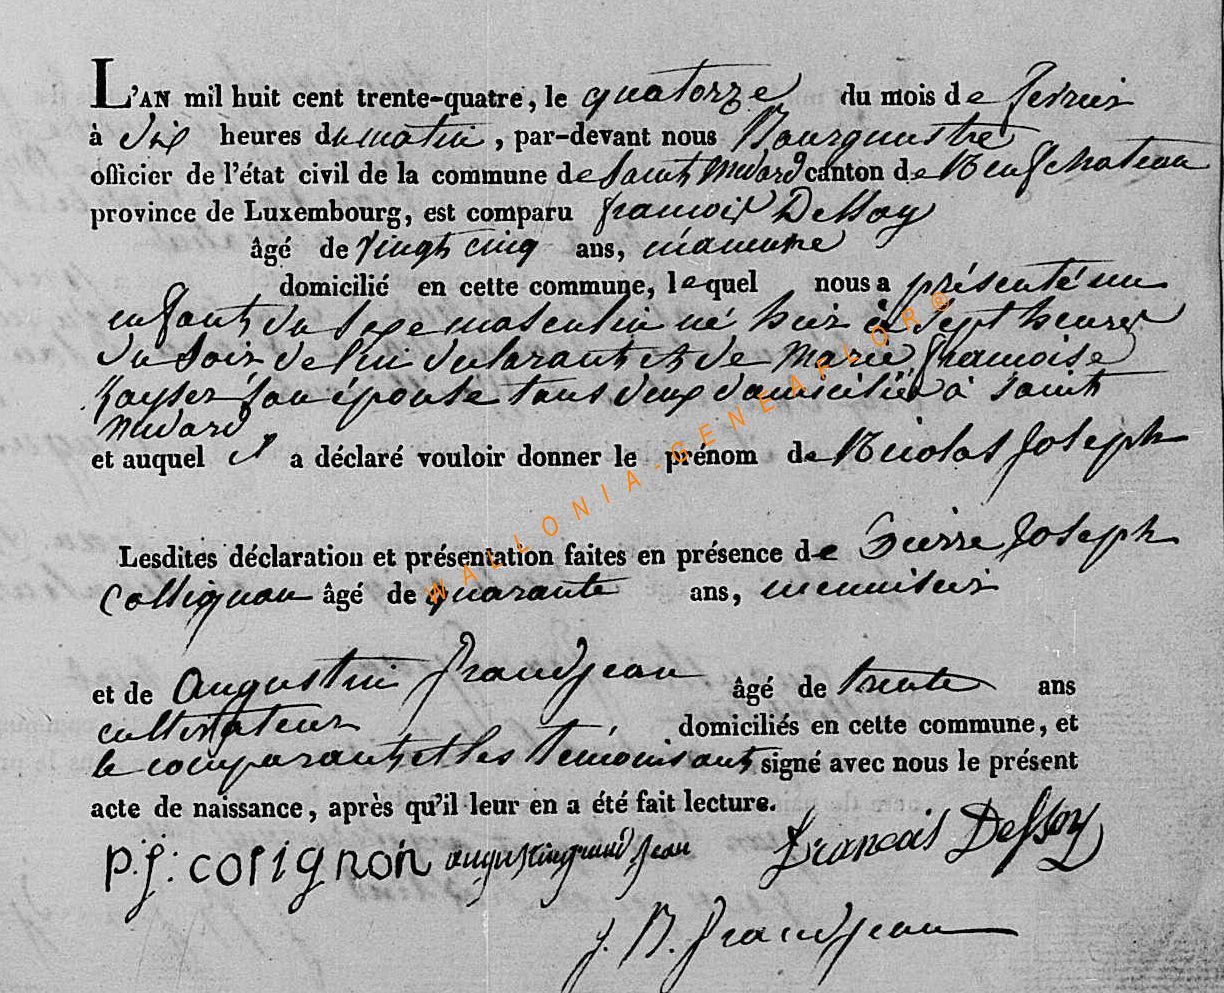 L'AN mil huit cent trente-quatre, le quatorze du mois de fevrier
à dix heures du matin, par-devant nous Bourguestre
officier de l'état civil de la commune de Saint Medard canton de Neufchateau
province de Luxembourg, est comparu francois Dessoy
âgé de vingt cinq ans, manuvre
domicilié en cette commune, lequel nous a présenté un
enfant du sexe masculin né hier à Sept heures
du soir de lui declarant et de Marie françoise
son épouse tous deux domiciliés à Saint
Medard
et auquel il a déclaré vouloir donner le prénom de Nicolas Joseph
Lesdites déclaration et présentation faites en présence de Pierre Joseph
Collignon âgé de quarante ans, menuisier
et de Augustin Grandjean âgé de trente ans
cultivateur domiciliés en cette commune, et
le comparant et les témoins ont signé avec nous le présent
acte de naissance, après qu'il leur en a été fait lecture.
p.j: colignon augustin grand jean francois Dessoy
J. B. Grandjean
WALLONIA-GENEAFLOR®